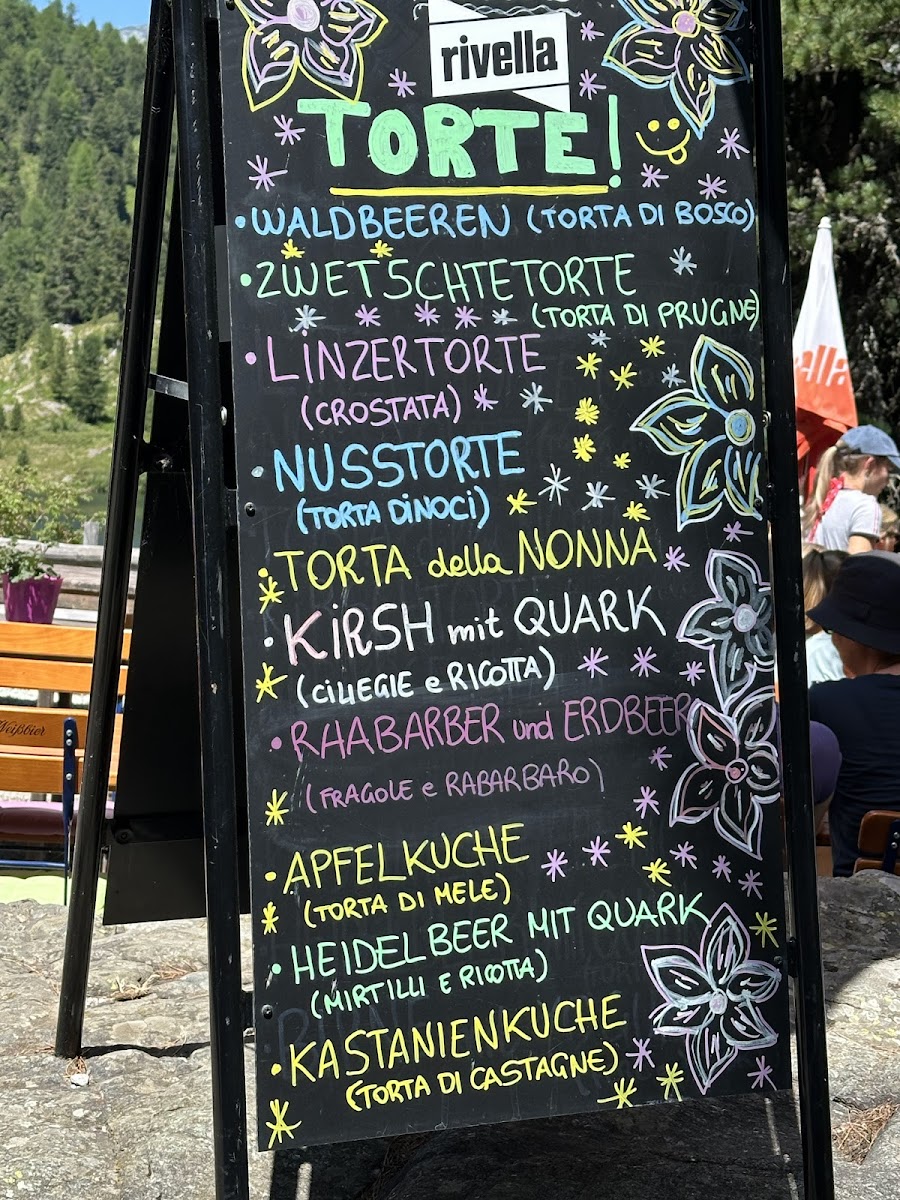 rivella
TORTE!
• WALDBEEREN (TORTA DI BOSCO)
• ZWETSCHTETORTE
(TORTA DI PRUGNE)
• LINZERTORTE
(CROSTATA)
• NUSSTORTE
(TORTA DI NOCI)
• TORTA della NONNA
• KIRSH mit QUARK
(CILIEGIE e RICOTTA)
• RHABARBER und ERDBEER
(FRAGOLE e RABARBARO)
• APFELKUCHE
(TORTA DI MELE)
• HEIDELBEER MIT QUARK
(MIRTILLI E RICOTTA)
• KASTANIENKUCHE
(TORTA DI CASTAGNE)
Weißbier